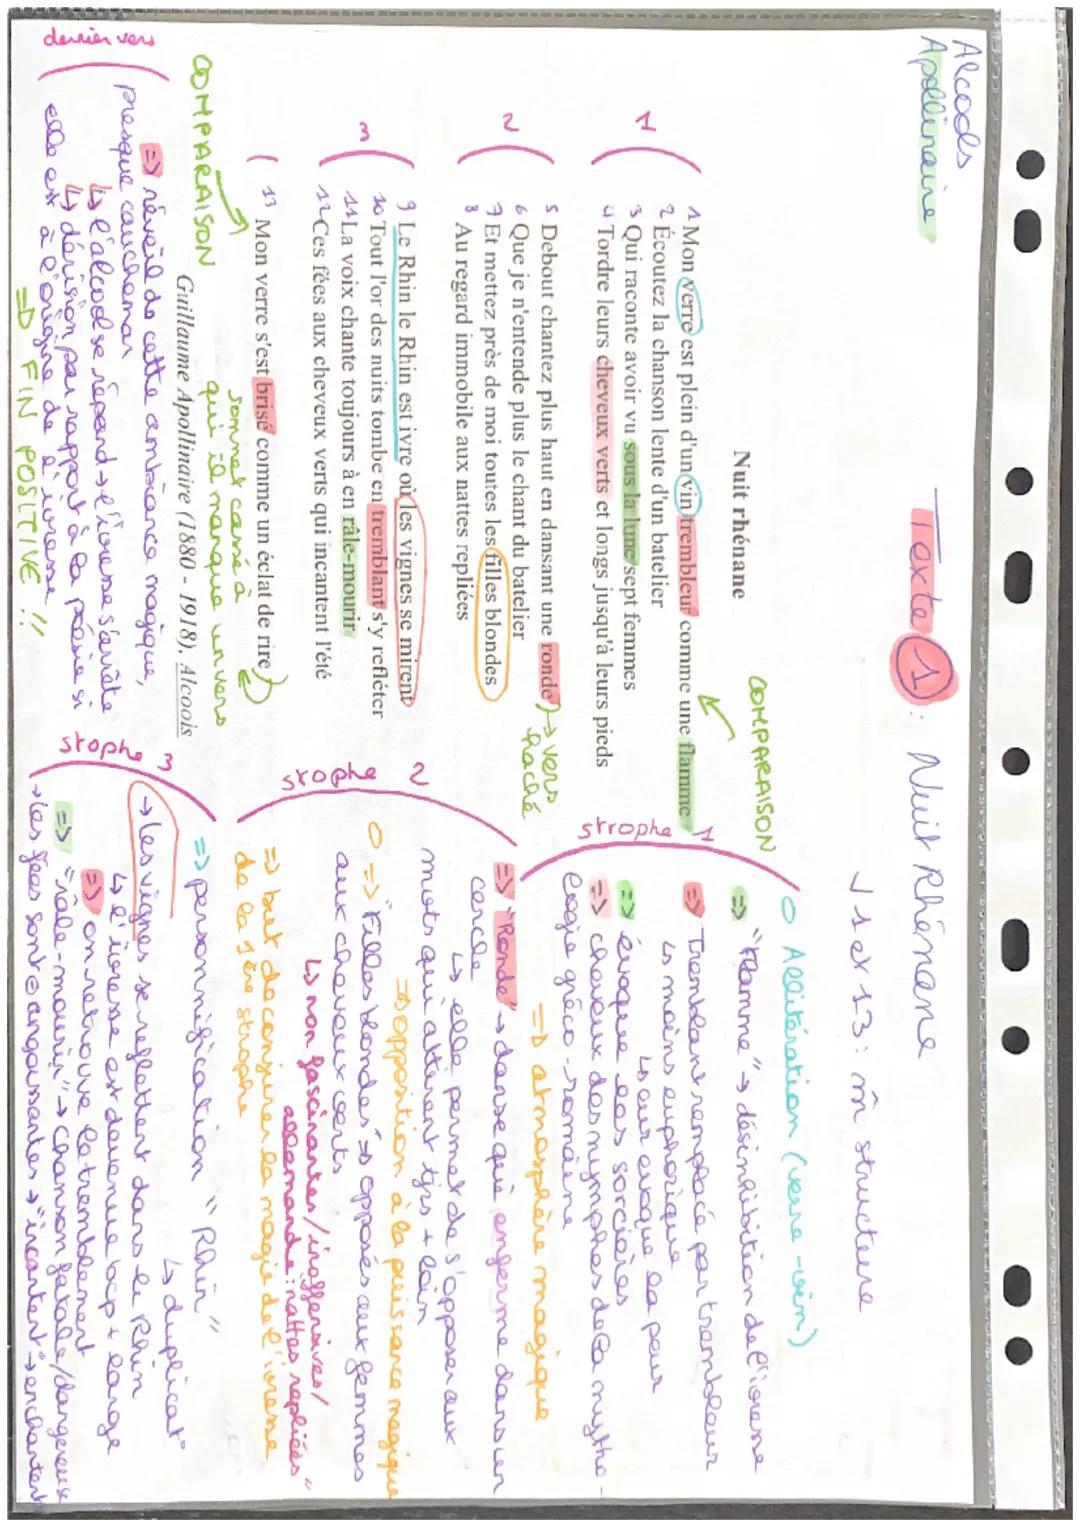 Alcools
Apollinaire
Texte 1 : Nuit Rhénane
√ 1 et 13 : m̂ structure
Nuit rhénane
COMPARAISON
1
1 Mon verre est plein d'un vin trembleur comme une flamme
2 Écoutez la chanson lente d'un batelier
3 Qui raconte avoir vu sous la lune sept femmes
4 Tordre leurs cheveux verts et longs jusqu'à leurs pieds
2
5 Debout chantez plus haut en dansant une ronde → vers
haché
6 Que je n'entende plus le chant du batelier
7 Et mettez près de moi toutes les filles blondes
8 Au regard immobile aux nattes repliées
3
9 Le Rhin le Rhin est ivre où les vignes se mirent
10 Tout l'or des nuits tombe en tremblant s'y refléter
11 La voix chante toujours à en râle-mourir
12 Ces fées aux cheveux verts qui incantent l'été
13 Mon verre s'est brisé comme un éclat de rire
COMPARAISON
sonnet cassé à
qui il manque un vers
Guillaume Apollinaire (1880 - 1918), Alcools
dernier vers
=> réveil de cette ambiance magique,
presque cauchemar
↳ l'alcool se répand → l'ivresse s'arrête
↳ dérision par rapport à la poésie si
elle est à l'origine de l'ivresse
=> FIN POSITIVE !!
strophe 1
O Allitération (verre - vin)
=> "Flamme" → désinhibition de l'ivresse
=> Tremblant remplacé par trembleur
↳ moins euphorique
↳ eur évoque la peur
=> évoque les sorcières
=> cheveux des nymphes de la mytho-
logie gréco-romaine
=> atmosphère magique
strophe 2
=> "Ronde" → danse qui enferme dans un
cercle
↳ elle permet de s'opposer aux
mots qui attirent tjrs + loin
=> opposition à la puissance magique
O => "Filles blondes" => opposés aux femmes
aux cheveux verts
↳ non fascinantes / inoffensives /
allemande : nattes repliées "
=> but de conjurer la magie de l'ivresse
de la 1ère strophe
stophe 3
=> personnification "Rhin"
↳ duplicat°
→ les vignes se reflettent dans le Rhin
↳ l'ivresse est devenue bcp + large
=> on retrouve le tremblement
=> "râle-mourir" → chanson fatale / dangereuse
→ les fées sont angoissantes → "incantent" → enchantent